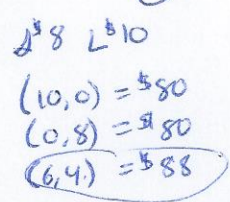 s$8 L$10
(10,0) = $80
(0,8) = $80
(6,4) = $88